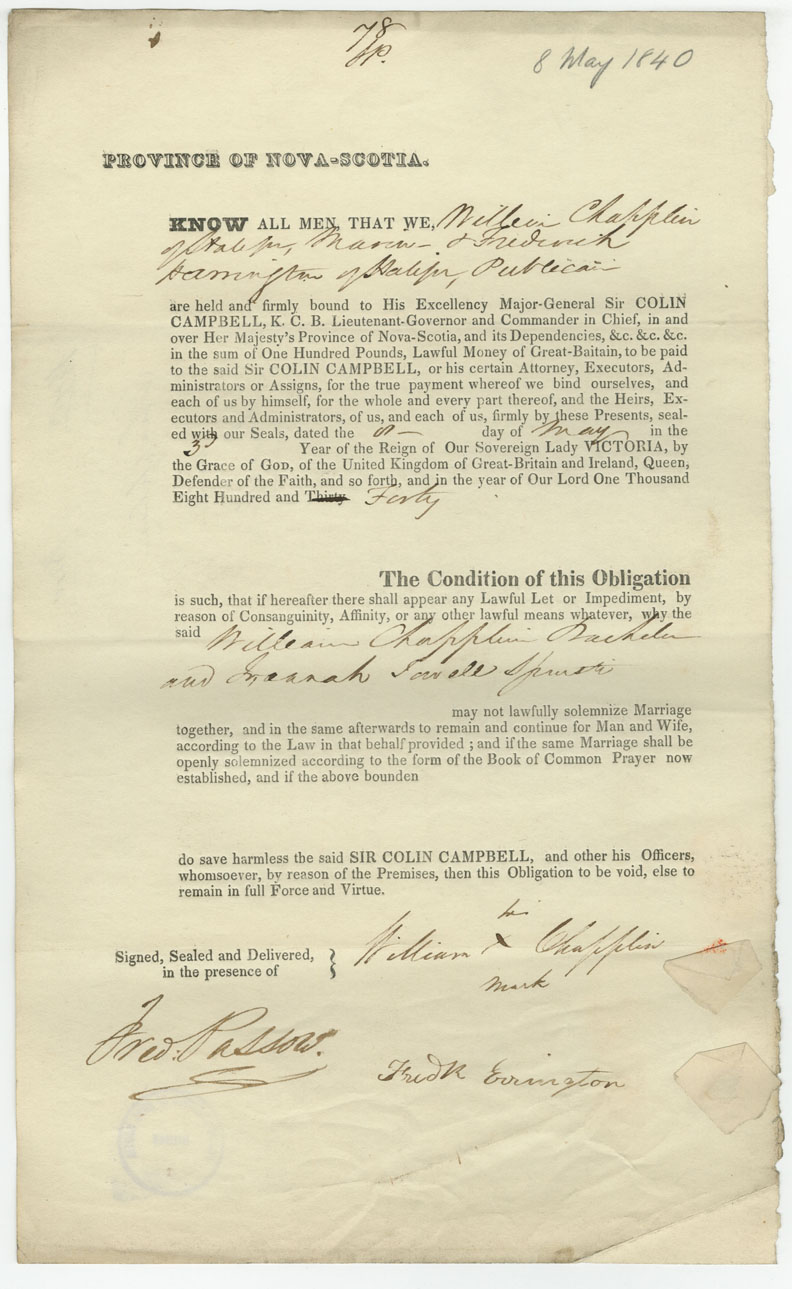 78
P.
8 May 1840
PROVINCE OF NOVA-SCOTIA.
KNOW ALL MEN, THAT WE, William Chapplin
of Halifax, Mason & Frederick
Harrington of Halifax, Publican
are held and firmly bound to His Excellency Major-General Sir COLIN
CAMPBELL, K. C. B. Lieutenant-Governor and Commander in Chief, in and
over Her Majesty's Province of Nova-Scotia, and its Dependencies, &c. &c. &c.
in the sum of One Hundred Pounds, Lawful Money of Great-Baitain, to be paid
to the said Sir COLIN CAMPBELL, or his certain Attorney, Executors, Ad-
ministrators or Assigns, for the true payment whereof we bind ourselves, and
each of us by himself, for the whole and every part thereof, and the Heirs, Ex-
ecutors and Administrators, of us, and each of us, firmly by these Presents, seal-
ed with our Seals, dated the 8 day of May in the
3d Year of the Reign of Our Sovereign Lady VICTORIA, by
the Grace of GOD, of the United Kingdom of Great-Britain and Ireland, Queen,
Defender of the Faith, and so forth, and in the year of Our Lord One Thousand
Eight Hundred and Thirty Forty
The Condition of this Obligation
is such, that if hereafter there shall appear any Lawful Let or Impediment, by
reason of Consanguinity, Affinity, or any other lawful means whatever, why the
said William Chapplin Bachelor
and Spinster
may not lawfully solemnize Marriage
together, and in the same afterwards to remain and continue for Man and Wife,
according to the Law in that behalf provided ; and if the same Marriage shall be
openly solemnized according to the form of the Book of Common Prayer now
established, and if the above bounden
do save harmless the said SIR COLIN CAMPBELL, and other his Officers,
whomsoever, by reason of the Premises, then this Obligation to be void, else to
remain in full Force and Virtue.
his
Signed, Sealed and Delivered, William x Chapplin
in the presence of
mark
Fred. Passow.
Fredk Errington